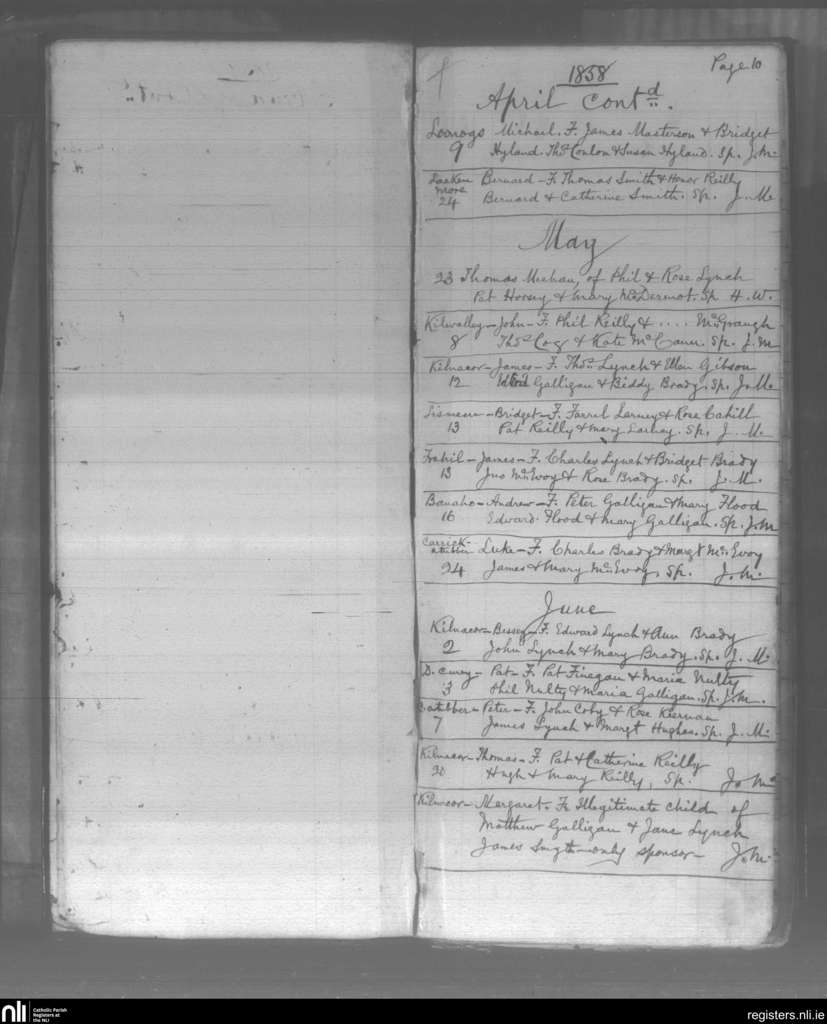 Page 10
1838
April Contd.
Michael. F. James Masterson & Bridget
9 Hyland. Thos Conlon & Susan Hyland. Sp. J.M.
Lacken Bernard - F. Thomas Smith & Honor Reilly
more
24 Bernard & Catherine Smith. Sp. J. M.
May
23 Thomas of Phil & Rose Lynch
Pat & Mary McDermot. Sp H. W.
John - F. Phil Reilly & ....
8 Thos Coy & Kate McCann. Sp. J. M
Kilnacor - James - F. Thos Lynch & Gibson
12 Galligan & Biddy Brady. Sp. J. M.
Bridget - F. Farrel Larney & Rose Cahill
13 Pat Reilly & Mary Larney. Sp. J. M.
James - F. Charles Lynch & Bridget Brady
13 Jno McEvoy & Rose Brady. Sp. J. M.
Banaho - Andrew - F. Peter Galligan & Mary Flood
16 Edward Flood & Mary Galligan. Sp. J. M
Carrick- Luke - F. Charles Brady & Margt McEvoy
24 James & Mary McEvoy, Sp. J. M.
June
Kilnacor - Bessey - F. Edward Lynch & Ann Brady
2 John Lynch & Mary Brady. Sp. J. M.
Pat - F. Pat Finegan & Maria Nulty
3 Phil Nulty & Maria Galligan. Sp. J. M.
Peter - F. John Coby & Rose Kiernan
7 James Lynch & Margt Hughes. Sp. J. M.
Kilnacor - Thomas - F. Pat & Catherine Reilly
Hugh & Mary Reilly, Sp. J. M.
Kilnacor - Margaret. F. Illegitimate child of
Matthew Galligan & Jane Lynch
James Smyth - only sponsor - J. M.
nli Catholic Parish
Registers at
the NLI
registers.nli.ie